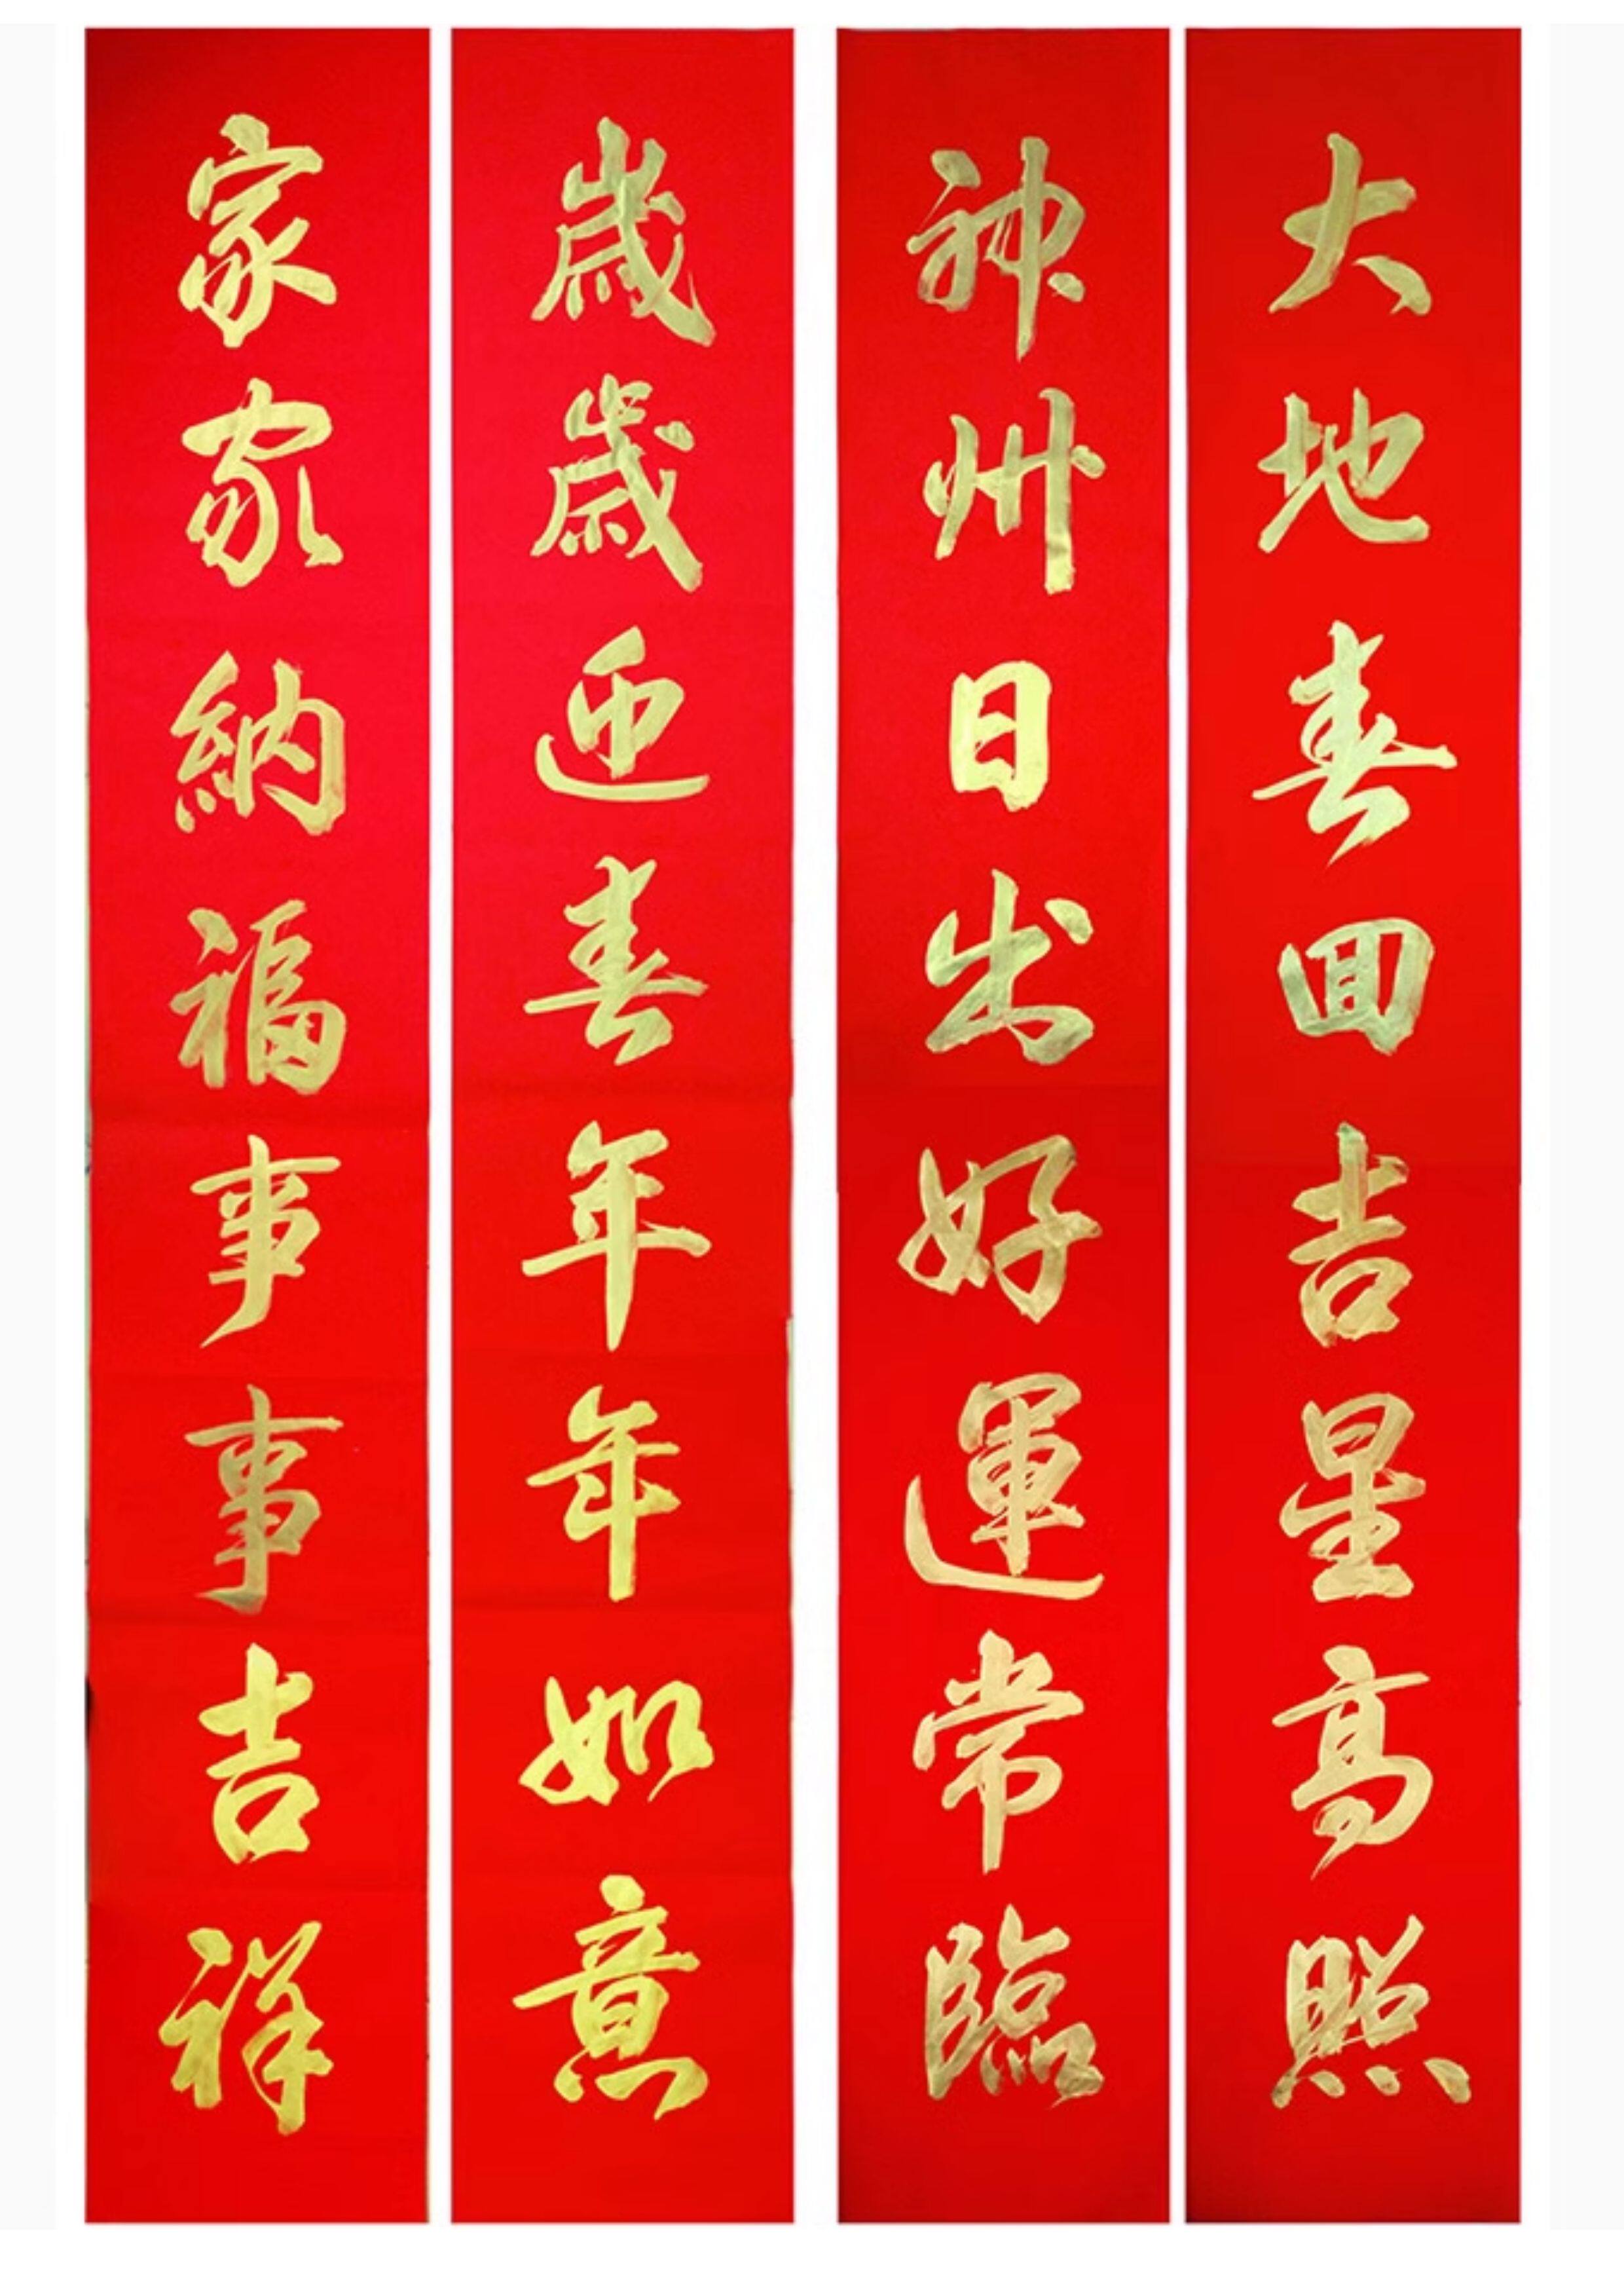 大地春回吉星高照
神州日出好運常臨
歲歲迎春年年如意
家家納福事事吉祥